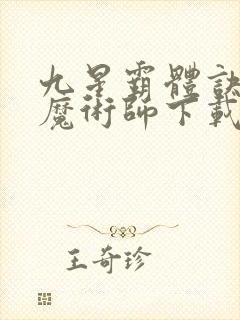 九星霸體訣
魔術師下載
王奇珍